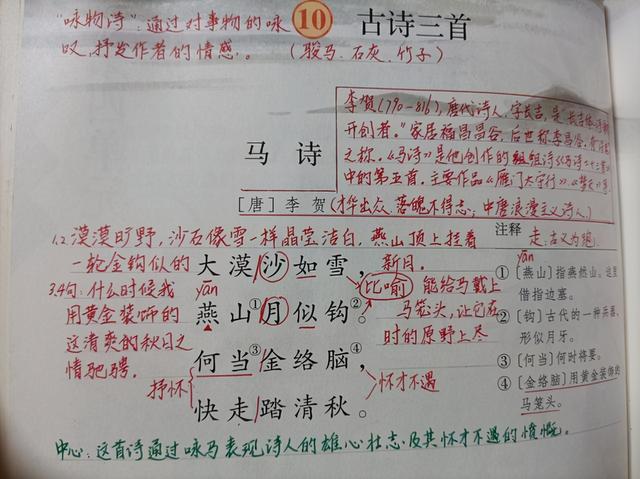 "咏物诗"：通过对事物的咏
叹，抒发作者的情感。（骏马、石灰、竹子）
10 古诗三首
李贺（790—816），唐代诗人，字长吉，是"长吉体诗歌
开创者。"家居福昌昌谷，后世称李昌谷，
之称。《马诗》是他创作的组诗《马诗二十三首》
中的第五首。主要作品《雁门太守行》、
马 诗
［唐］李 贺（才华出众，落魄不得志，中唐浪漫主义诗人。）
1.2. 漠漠旷野，沙石像雪一样晶莹洁白，燕山顶上挂着
一轮金钩似的 新月。
大漠沙如雪，
yān
燕山①月似钩②。
何当③金络脑④，
快走踏清秋。
比喻
3.4句：什么时候我
用黄金装饰的
能给马戴上
马笼头，让它在
这清爽的秋日之
时的原野上尽
情驰骋。
抒怀
怀才不遇
注释
走：古义为跑。
yān
①［燕山］指燕然山。这里
借指边塞。
②［钩］古代的一种兵器，
形似月牙。
③［何当］何时将要。
④［金络脑］用黄金装饰的
马笼头。
中心：这首诗通过咏马表现诗人的雄心壮志及其怀才不遇的愤慨。